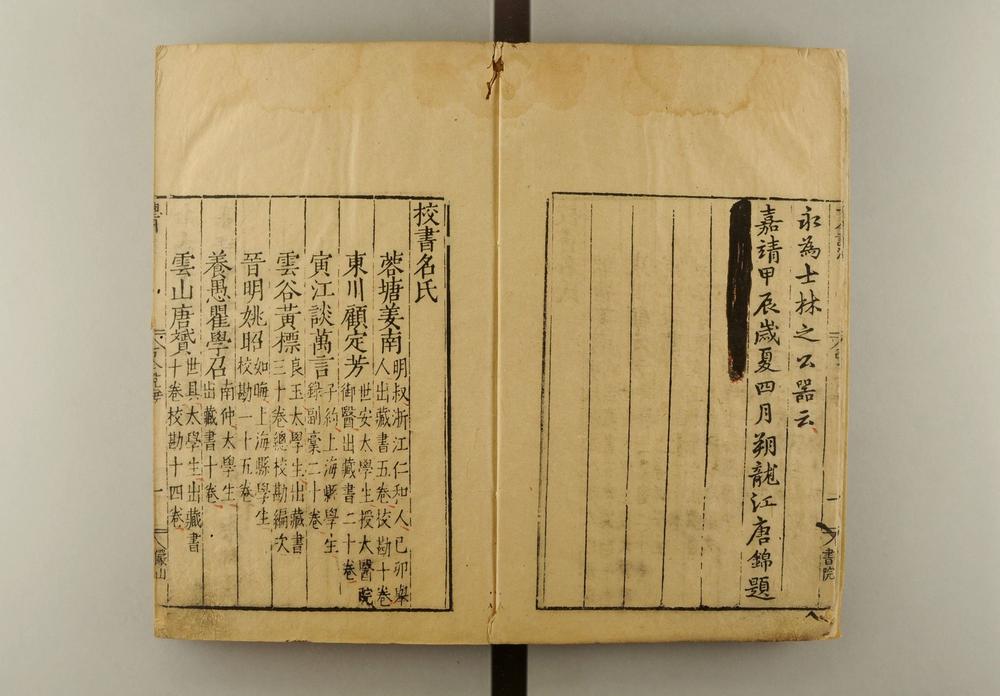 永為士林之公器云
嘉靖甲辰歲夏四月朔龍江唐錦題
書院
校書名氏
蓉塘姜南
明叔浙江仁和人己卯舉
人出藏書五卷校勘十卷
東川顧定芳
世安太學生授太醫院
御醫出藏書二十卷
寅江談萬言
子約上海縣學生
錄副藁二十卷
雲谷黃標
良玉太學生出藏書
三十卷總校勘編次
晉明姚昭
如晦上海縣學生
校勘一十五卷
養愚瞿學召
南仲太學生
出藏書十卷
雲山唐贇
世具太學生出藏書
十卷校勘十四卷
一
儼山